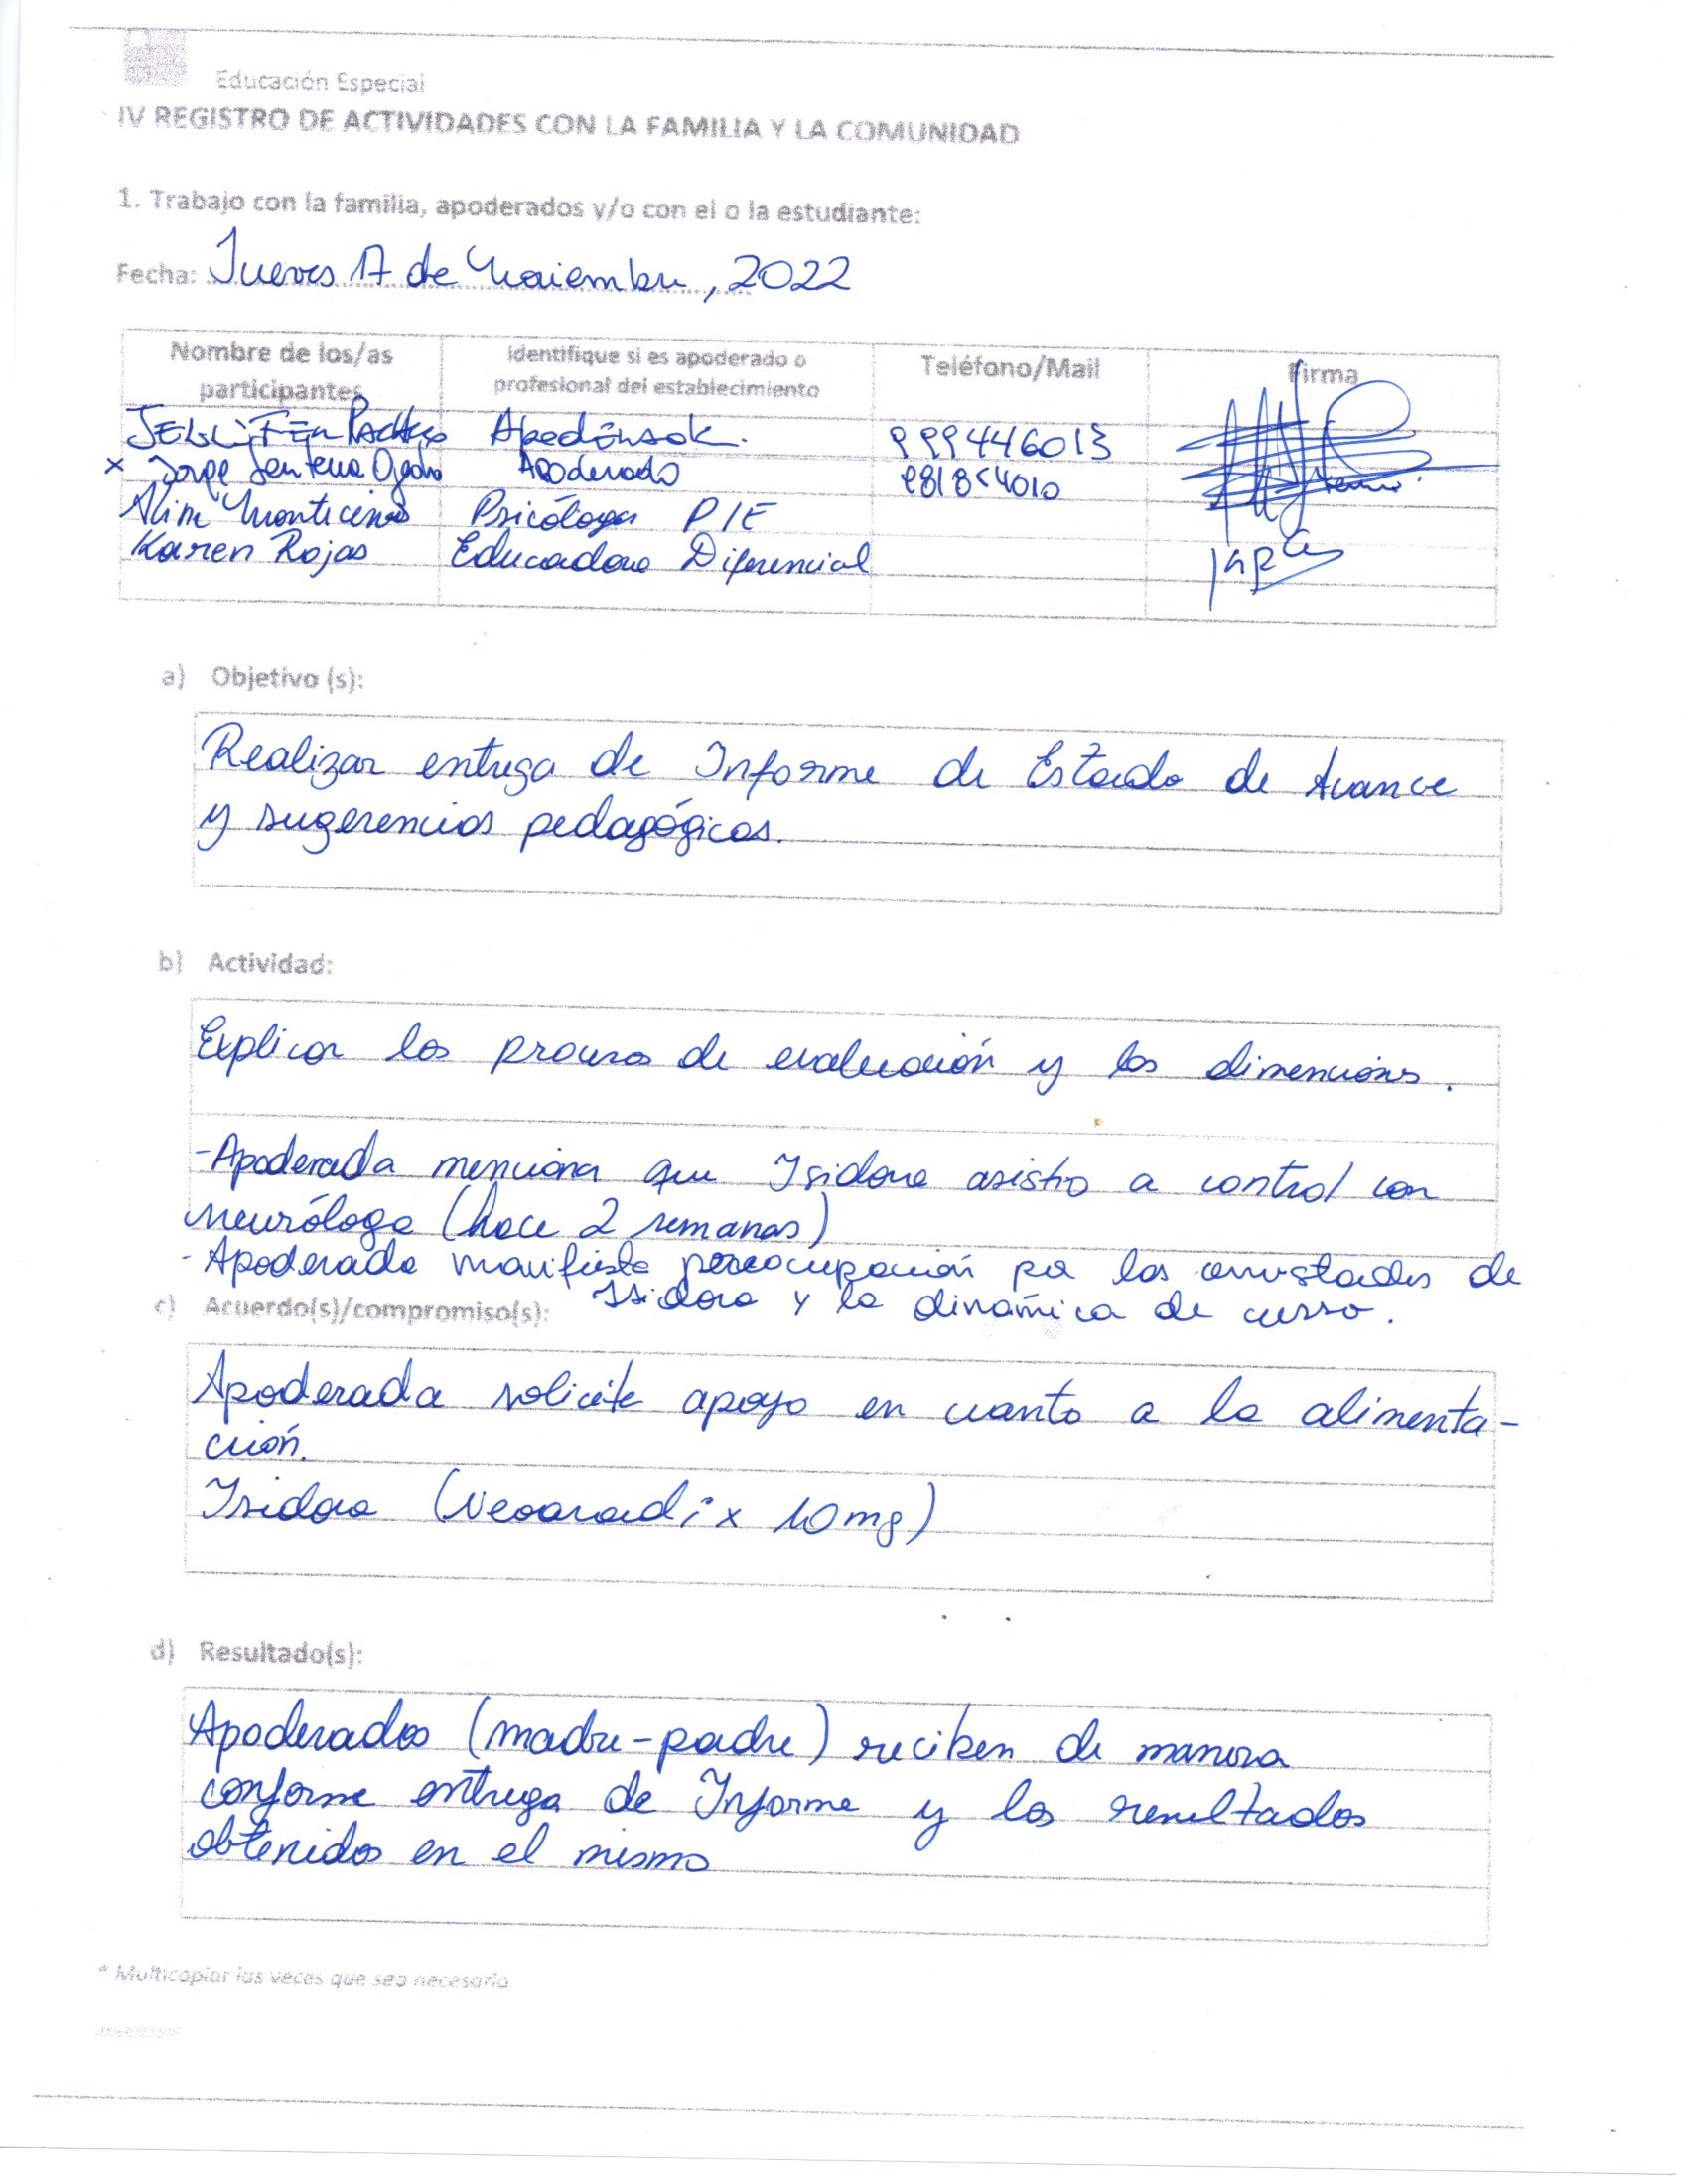 Educación Especial
IV REGISTRO DE ACTIVIDADES CON LA FAMILIA Y LA COMUNIDAD
1. Trabajo con la familia, apoderados y/o con el o la estudiante:
Fecha: Jueves 17 de Noviembre, 2022
Nombre de los/as participantes Identifique si es apoderado o profesional del establecimiento Teléfono/Mail Firma
Pacheco 999446013
x Jorge Apoderado 981854010
Psicóloga PIE
Karen Rojas Educadora Diferencial
a) Objetivo (s):
Realizar entrega de Informe de Estado de Avance
y sugerencias pedagógicas.
b) Actividad:
Explicar los proceso de evaluación y las dimenciones.
- Apoderada menciona que Isidora asistio a control con
neurólogo (hace 2 semanas)
- Apoderada manifiesta preocupación por las de
Isidora y la dinámica de curso.
c) Acuerdo(s)/compromiso(s):
Apoderada solicita apoyo en cuanto a la alimenta-
ción.
Isidora ( 10 mg)
d) Resultado(s):
Apoderados (madre-padre) reciben de manera
conforme entrega de Informe y los resultados
obtenidos en el mismo
* Multicopiar las veces que sea necesario